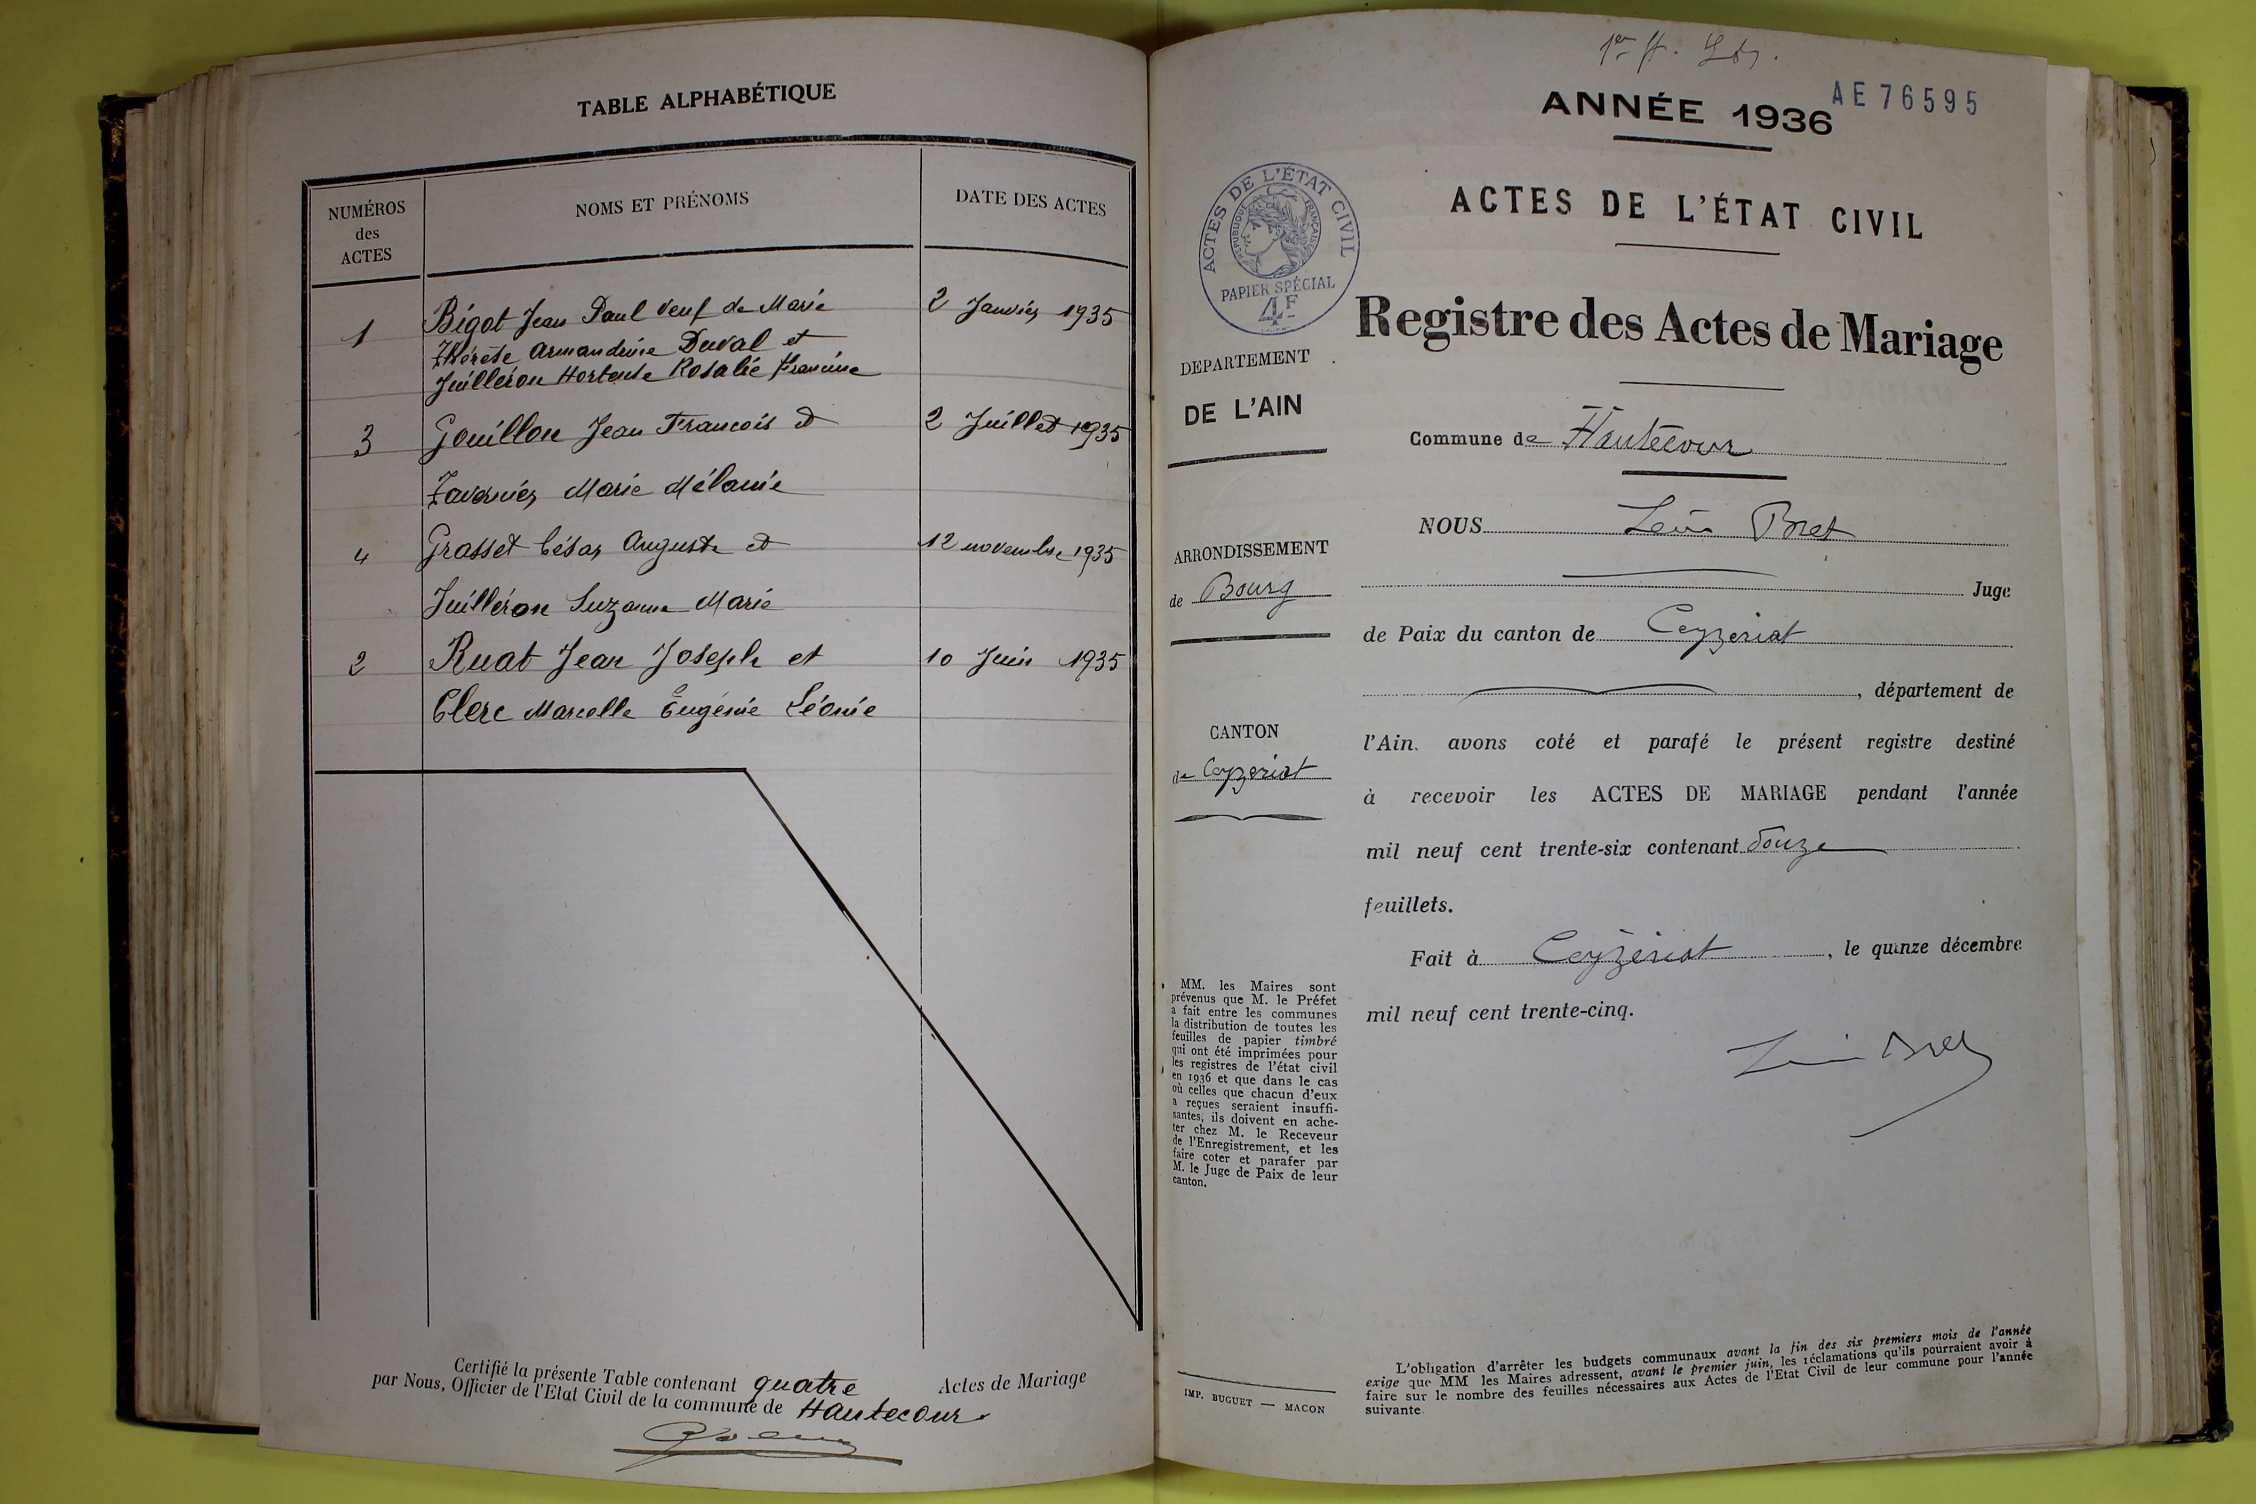 TABLE ALPHABÉTIQUE
NUMÉROS
des
ACTES
NOMS ET PRÉNOMS
DATE DES ACTES
1 Bigot Jean Paul veuf de Marie 2 Janvier 1935
Thérèse Armandrine Duval et
Juilléron Hortense Rosalie Francine
3 Gouillon Jean Francois et 2 Juillet 1935
Tavernier Marie Mélanie
4 Grasset César Auguste et 12 novembre 1935
Juilléron Suzanne Marie
2 Ruat Jean Joseph et 10 Juin 1935
Clerc Marcelle Eugénie Léonie
Certifié la présente Table contenant quatre Actes de Mariage
par Nous, Officier de l'Etat Civil de la commune de Hautecour
AE 76595
ANNÉE 1936
ACTES DE L'ÉTAT CIVIL
ACTES DE L'ÉTAT CIVIL
RÉPUBLIQUE FRANÇAISE
PAPIER SPÉCIAL
4F
Registre des Actes de Mariage
DEPARTEMENT
DE L'AIN
ARRONDISSEMENT
de Bourg
CANTON
de Ceyzeriat
MM. les Maires sont
prévenus que M. le Préfet
a fait entre les communes
la distribution de toutes les
feuilles de papier timbré
qui ont été imprimées pour
les registres de l'état civil
en 1936 et que dans le cas
où celles que chacun d'eux
a reçues seraient insuffi-
santes, ils doivent en ache-
ter chez M. le Receveur
de l'Enregistrement, et les
faire coter et parafer par
M. le Juge de Paix de leur
canton.
IMP. BUGUET — MACON
Commune de Hautecour
NOUS Léon Bret
Juge
de Paix du canton de Ceyzeriat
, département de
l'Ain, avons coté et parafé le présent registre destiné
à recevoir les ACTES DE MARIAGE pendant l'année
mil neuf cent trente-six contenant douze
feuillets.
Fait à Ceyzériat, le quinze décembre
mil neuf cent trente-cinq.
L'obligation d'arrêter les budgets communaux avant la fin des six premiers mois de l'année
exige que MM les Maires adressent, avant le premier juin, les réclamations qu'ils pourraient avoir à
faire sur le nombre des feuilles nécessaires aux Actes de l'Etat Civil de leur commune pour l'année
suivante.